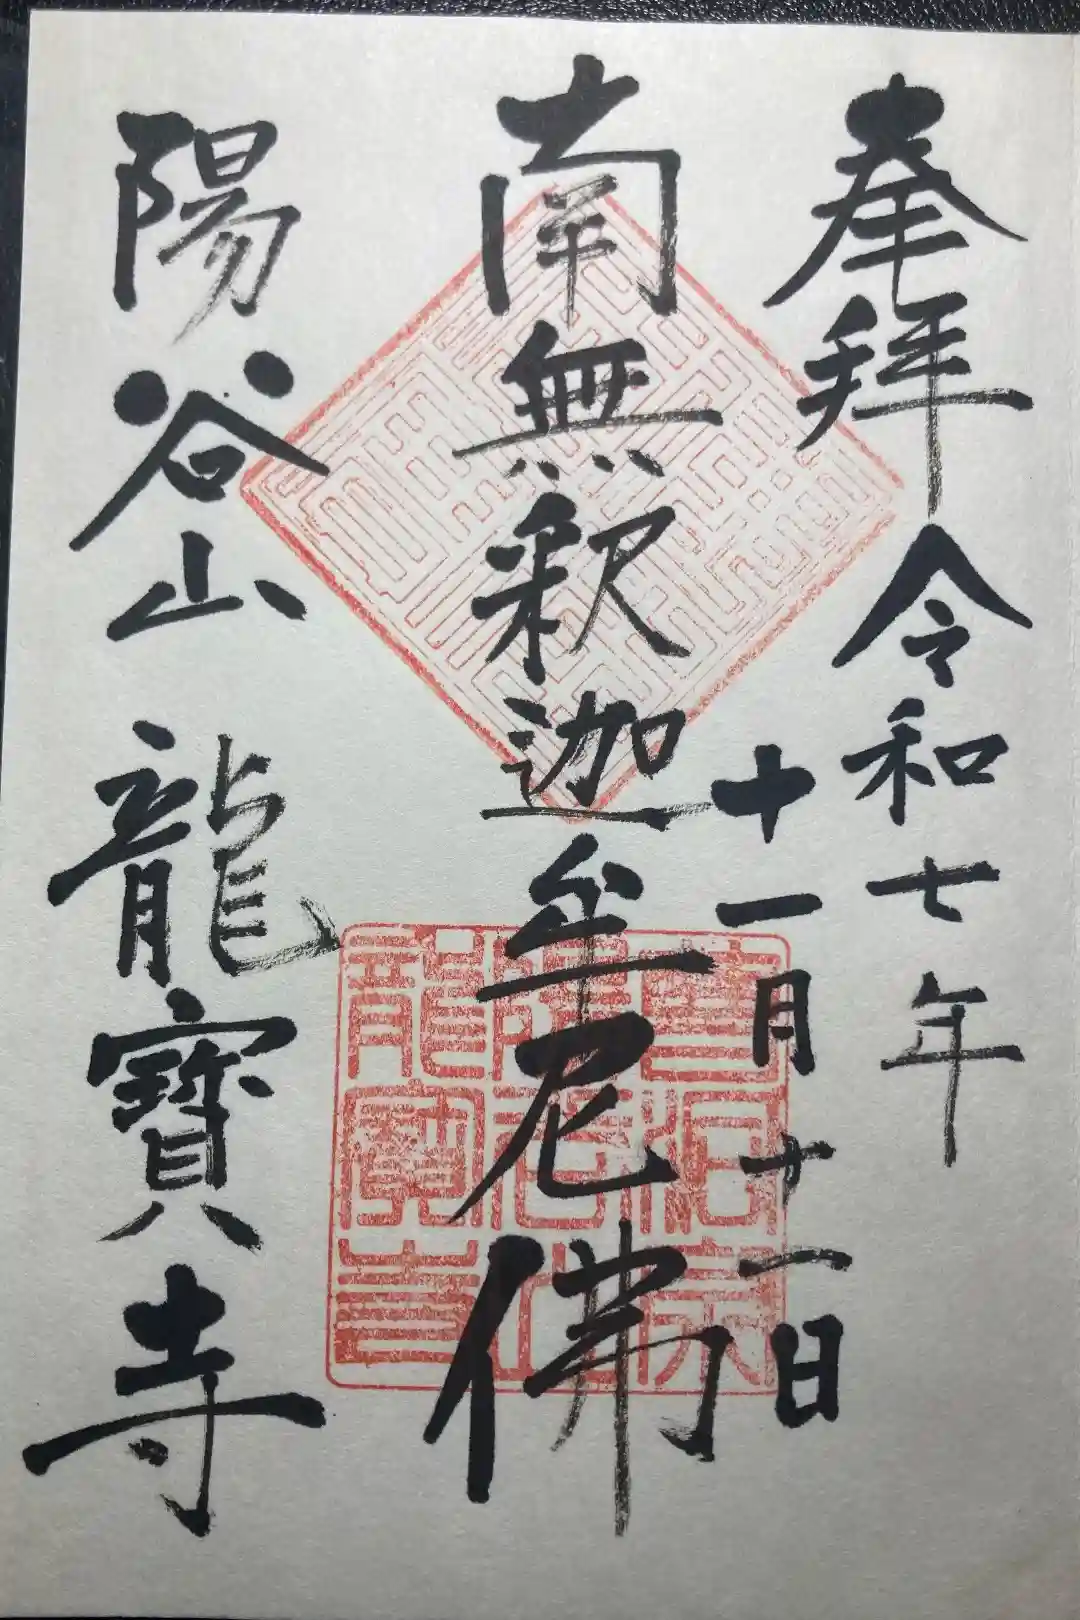 奉拝 令和七年
十一月十一日
南無釈迦牟尼佛
陽谷山 龍寶寺